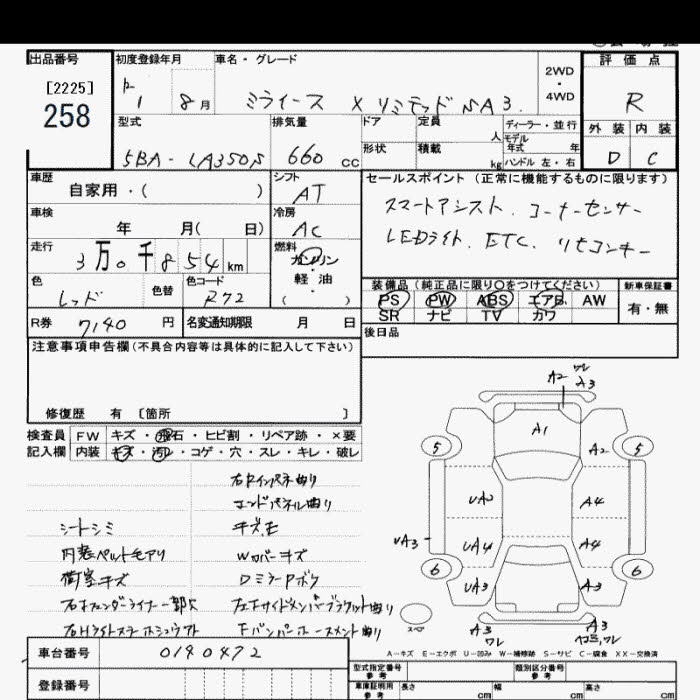 出品番号 初度登録年月 車名・グレード 2WD・4WD 評価点
[2225]
258
R 1 8月 ミライース X リミテッド SA3 R
型式 排気量 ドア 定員 人 ディーラー・並行 外装 内装
5BA-LA350S 660cc 形状 積載 kg モデル年式 年 ハンドル 左・右 D C
車歴 自家用・( ) シフト AT
セールスポイント (正常に機能するものに限ります)
スマートアシスト. コーナーセンサー
LEDライト. ETC. リモコンキー
車検 年 月( 日) 冷房 AC
走行 3万0千854km 燃料 ガソリン・軽油 ( )
色 レッド 色替 色コード R72
装備品 (純正品に限り○をつけてください) 新車保証書
PS PW ABS エアB AW 有・無
SR ナビ TV カワ
R券 7140円 名変通知期限 月 日
後日品
注意事項申告欄(不具合内容等は具体的に記入して下さい)
修復歴 有 〔箇所 〕
検査員 FW キズ・飛石・ヒビ割・リペア跡・×要
記入欄 内装 キズ・汚レ・コゲ・穴・スレ・キレ・破レ
右Rインパネ曲り
エンドパネル曲り
シートシミ キズ.モ
内装ペットモアリ Wカバーキズ
荷室キズ DミラーPボケ
右フェンダーライナー一部欠 左Fサイドメンバーブラケット曲り
Fバンパーホースメント曲り
A2 ワレ A3
A1
5 A2 5
UA2 A4
UA3 UA4 A4
6 UA3 A3 6
スペア A3 ワレ A3 ワレ
A-キズ E-エクボ U-凹み W-補修跡 S-サビ C-腐食 XX-交換済
車台番号 0140472
型式指定番号 参考 類別区分番号 参考
登録番号
車庫証明用 参考 長さ cm 幅 cm 高さ cm